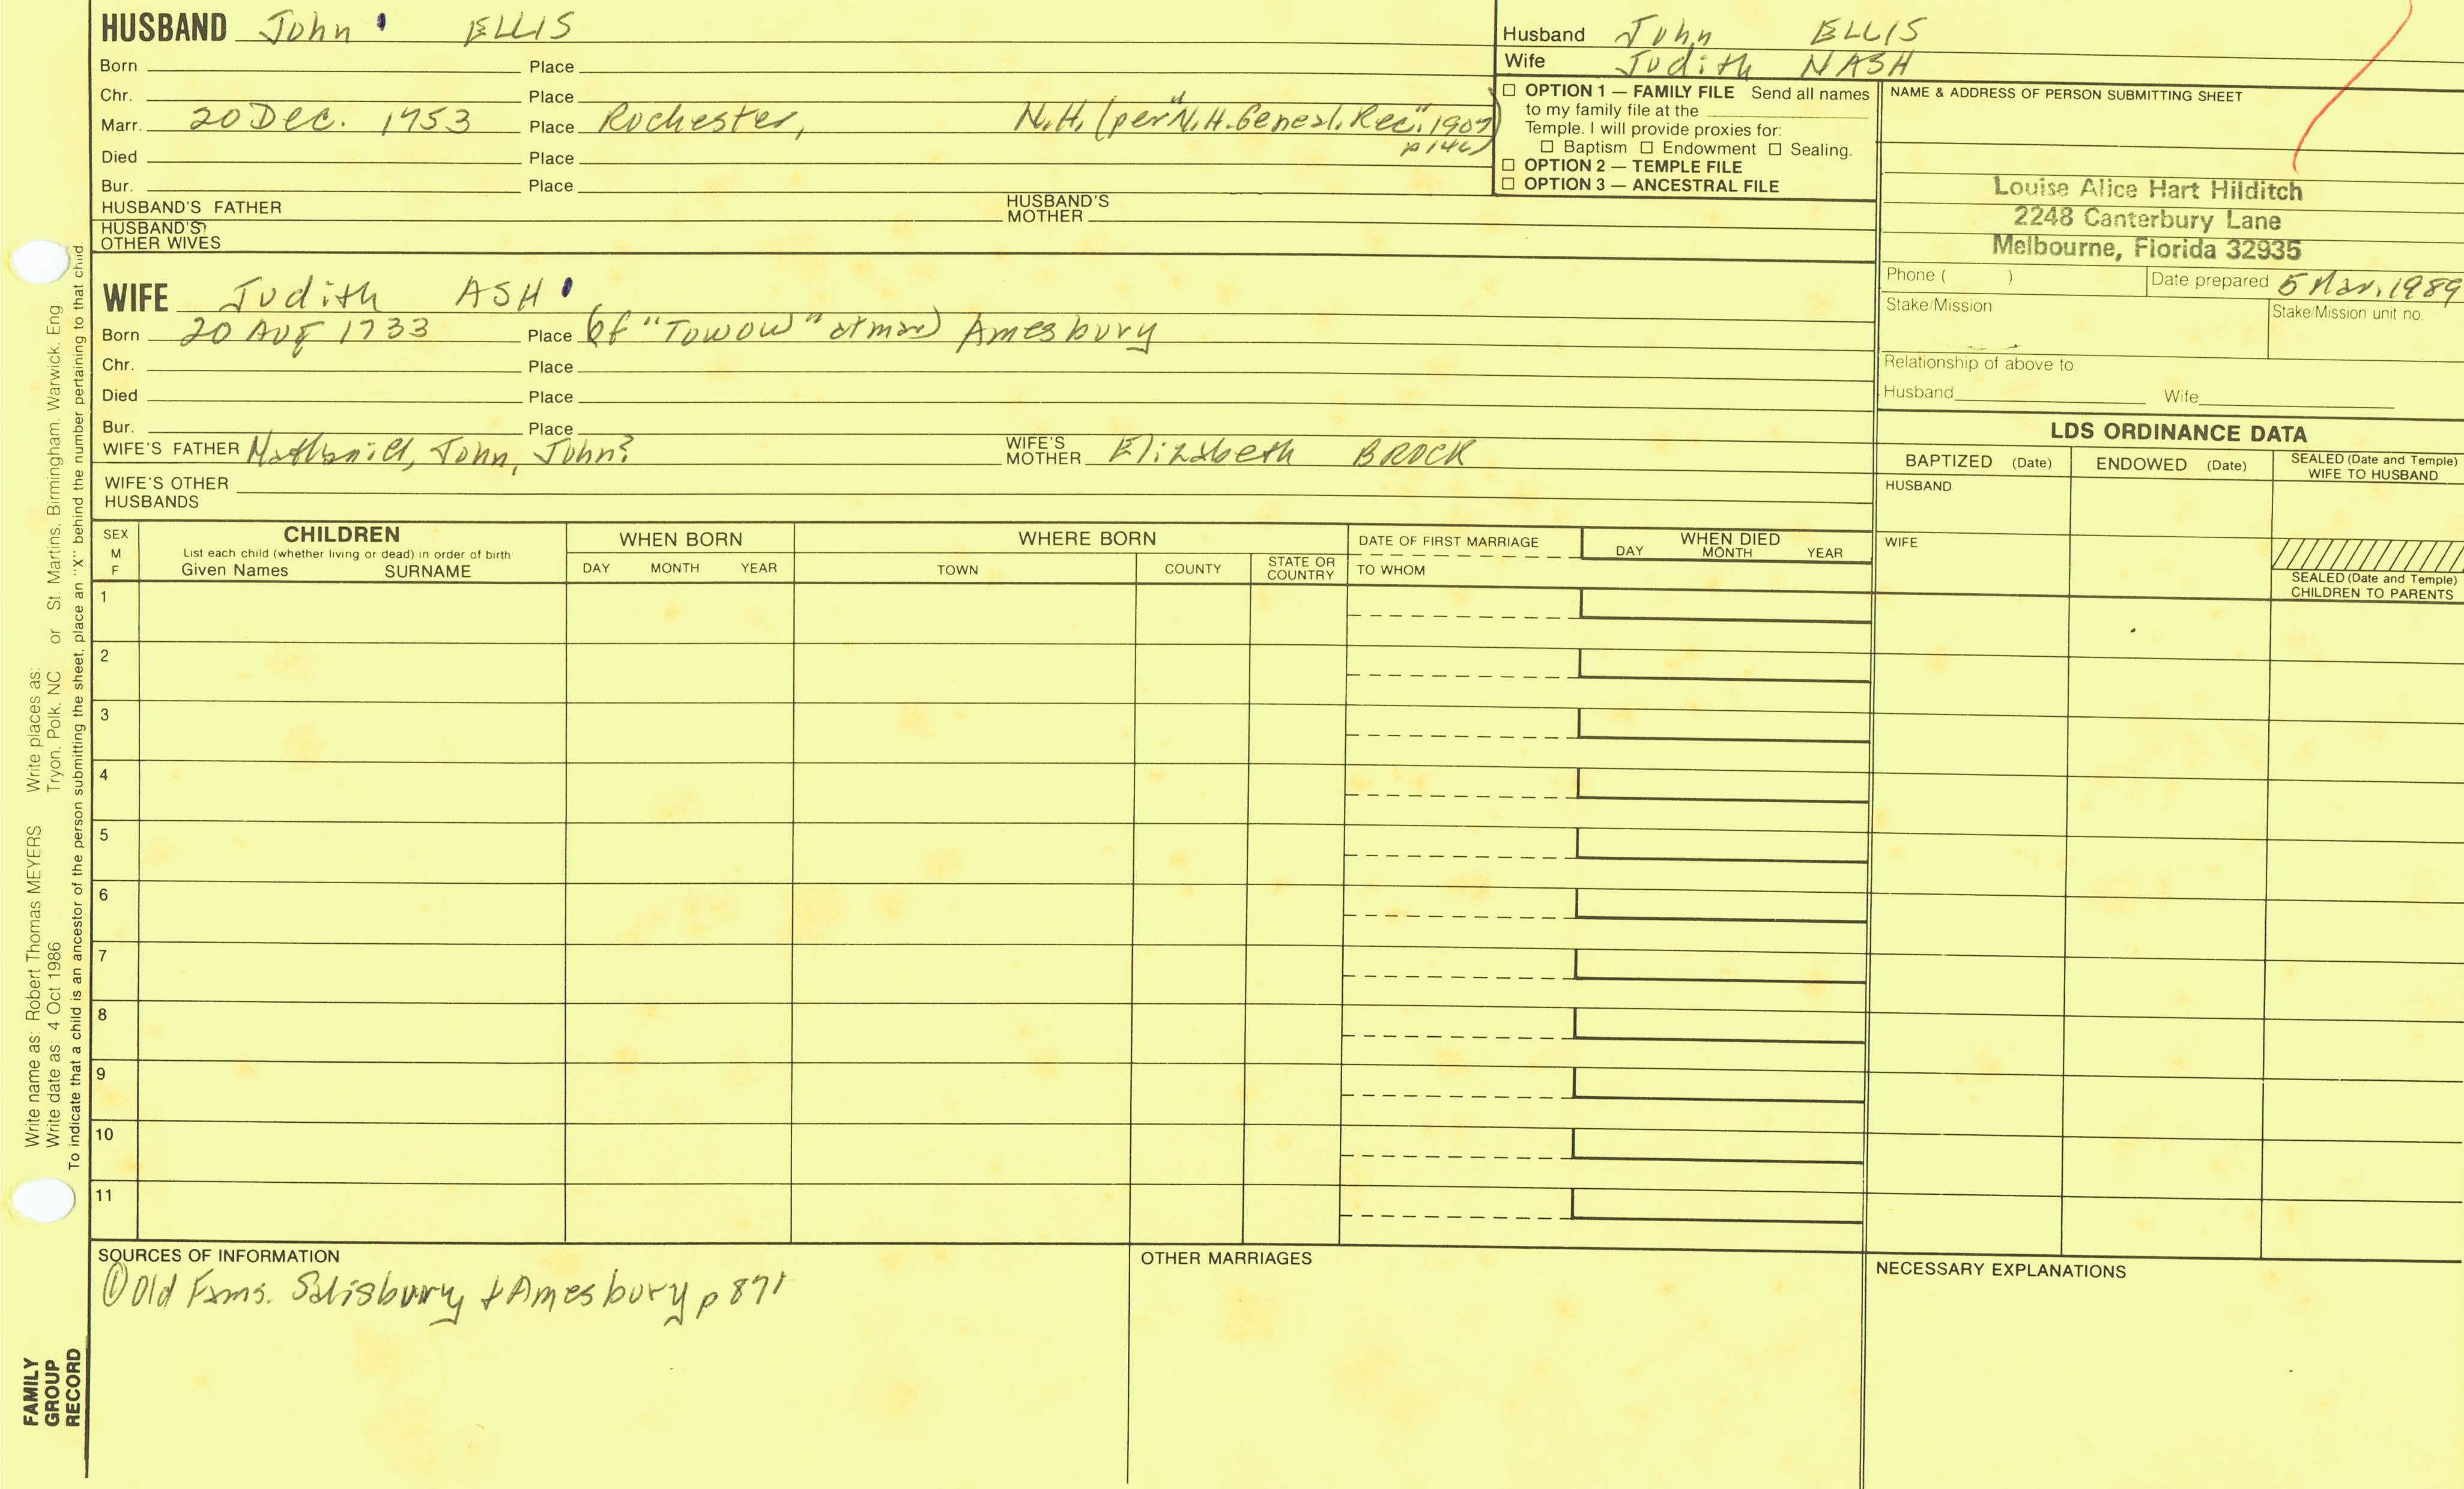 HUSBAND John ELLIS
Born Place
Chr. Place
Marr. 20 Dec. 1753 Place Rochester, N.H. (per "N.H. Geneal. Rec." 1907 p 146)
Died Place
Bur. Place
HUSBAND'S FATHER HUSBAND'S MOTHER
HUSBAND'S OTHER WIVES
WIFE Judith ASH
Born 20 Aug 1733 Place (of "Towow" at mar) Amesbury
Chr. Place
Died Place
Bur. Place
WIFE'S FATHER Nathaniel, John, John? WIFE'S MOTHER Elizabeth BROCK
WIFE'S OTHER HUSBANDS
Husband John ELLIS
Wife Judith NASH
☐ OPTION 1 — FAMILY FILE Send all names
to my family file at the
Temple. I will provide proxies for:
☐ Baptism ☐ Endowment ☐ Sealing.
☐ OPTION 2 — TEMPLE FILE
☐ OPTION 3 — ANCESTRAL FILE
NAME & ADDRESS OF PERSON SUBMITTING SHEET
Louise Alice Hart Hilditch
2248 Canterbury Lane
Melbourne, Florida 32935
Phone ( ) Date prepared 5 Mar. 1989
Stake/Mission Stake/Mission unit no.
Relationship of above to:
Husband Wife
LDS ORDINANCE DATA
BAPTIZED (Date) ENDOWED (Date) SEALED (Date and Temple) WIFE TO HUSBAND
HUSBAND
WIFE
SEALED (Date and Temple)
CHILDREN TO PARENTS
SEX M F
CHILDREN
List each child (whether living or dead) in order of birth
Given Names SURNAME
WHEN BORN
DAY MONTH YEAR
WHERE BORN
TOWN COUNTY STATE OR COUNTRY
DATE OF FIRST MARRIAGE
TO WHOM
WHEN DIED
DAY MONTH YEAR
1
2
3
4
5
6
7
8
9
10
11
SOURCES OF INFORMATION
① Old Fams. Salisbury + Amesbury p 871
OTHER MARRIAGES
NECESSARY EXPLANATIONS
Write name as: Robert Thomas MEYERS Write places as:
Write date as: 4 Oct 1986 Tryon, Polk, NC or St. Martins, Birmingham, Warwick, Eng.
To indicate that a child is an ancestor of the person submitting the sheet, place an "X" behind the number pertaining to that child.
FAMILY
GROUP
RECORD